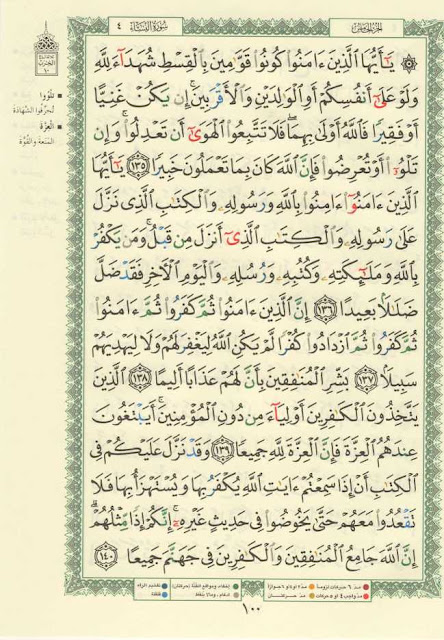 الجزء الخامس
سورة النساء ٤
۞ يَٰٓأَيُّهَا ٱلَّذِينَ ءَامَنُوا۟ كُونُوا۟ قَوَّٰمِينَ بِٱلْقِسْطِ شُهَدَآءَ لِلَّهِ
وَلَوْ عَلَىٰٓ أَنفُسِكُمْ أَوِ ٱلْوَٰلِدَيْنِ وَٱلْأَقْرَبِينَ ۚ إِن يَكُنْ غَنِيًّا
أَوْ فَقِيرًا فَٱللَّهُ أَوْلَىٰ بِهِمَا ۖ فَلَا تَتَّبِعُوا۟ ٱلْهَوَىٰٓ أَن تَعْدِلُوا۟ ۚ وَإِن
تَلْوُۥٓا۟ أَوْ تُعْرِضُوا۟ فَإِنَّ ٱللَّهَ كَانَ بِمَا تَعْمَلُونَ خَبِيرًا ١٣٥ يَٰٓأَيُّهَا
ٱلَّذِينَ ءَامَنُوٓا۟ ءَامِنُوا۟ بِٱللَّهِ وَرَسُولِهِۦ وَٱلْكِتَٰبِ ٱلَّذِى نَزَّلَ
عَلَىٰ رَسُولِهِۦ وَٱلْكِتَٰبِ ٱلَّذِىٓ أَنزَلَ مِن قَبْلُ ۚ وَمَن يَكْفُرْ
بِٱللَّهِ وَمَلَٰٓئِكَتِهِۦ وَكُتُبِهِۦ وَرُسُلِهِۦ وَٱلْيَوْمِ ٱلْءَاخِرِ فَقَدْ ضَلَّ
ضَلَٰلًۢا بَعِيدًا ١٣٦ إِنَّ ٱلَّذِينَ ءَامَنُوا۟ ثُمَّ كَفَرُوا۟ ثُمَّ ءَامَنُوا۟
ثُمَّ كَفَرُوا۟ ثُمَّ ٱزْدَادُوا۟ كُفْرًا لَّمْ يَكُنِ ٱللَّهُ لِيَغْفِرَ لَهُمْ وَلَا لِيَهْدِيَهُمْ
سَبِيلًۢا ١٣٧ بَشِّرِ ٱلْمُنَٰفِقِينَ بِأَنَّ لَهُمْ عَذَابًا أَلِيمًا ١٣٨ ٱلَّذِينَ
يَتَّخِذُونَ ٱلْكَٰفِرِينَ أَوْلِيَآءَ مِن دُونِ ٱلْمُؤْمِنِينَ ۚ أَيَبْتَغُونَ
عِندَهُمُ ٱلْعِزَّةَ فَإِنَّ ٱلْعِزَّةَ لِلَّهِ جَمِيعًا ١٣٩ وَقَدْ نَزَّلَ عَلَيْكُمْ فِى
ٱلْكِتَٰبِ أَنْ إِذَا سَمِعْتُمْ ءَايَٰتِ ٱللَّهِ يُكْفَرُ بِهَا وَيُسْتَهْزَأُ بِهَا فَلَا
تَقْعُدُوا۟ مَعَهُمْ حَتَّىٰ يَخُوضُوا۟ فِى حَدِيثٍ غَيْرِهِۦٓ ۚ إِنَّكُمْ إِذًا مِّثْلُهُمْ ۗ
إِنَّ ٱللَّهَ جَامِعُ ٱلْمُنَٰفِقِينَ وَٱلْكَٰفِرِينَ فِى جَهَنَّمَ جَمِيعًا ١٤٠
تلووا
تُحرِّفوا الشهادة
العزة
المنعة والقوة
مد ٦ حركات لزوماً
مد ٢ أو ٤ أو ٦ جوازاً
مد واجب ٤ أو ٥ حركات
مد حركتان
إخفاء، ومواقع الغنة (حركتان)
إدغام، وما لا يلفظ
تفخيم الراء
قلقلة
١٠٠